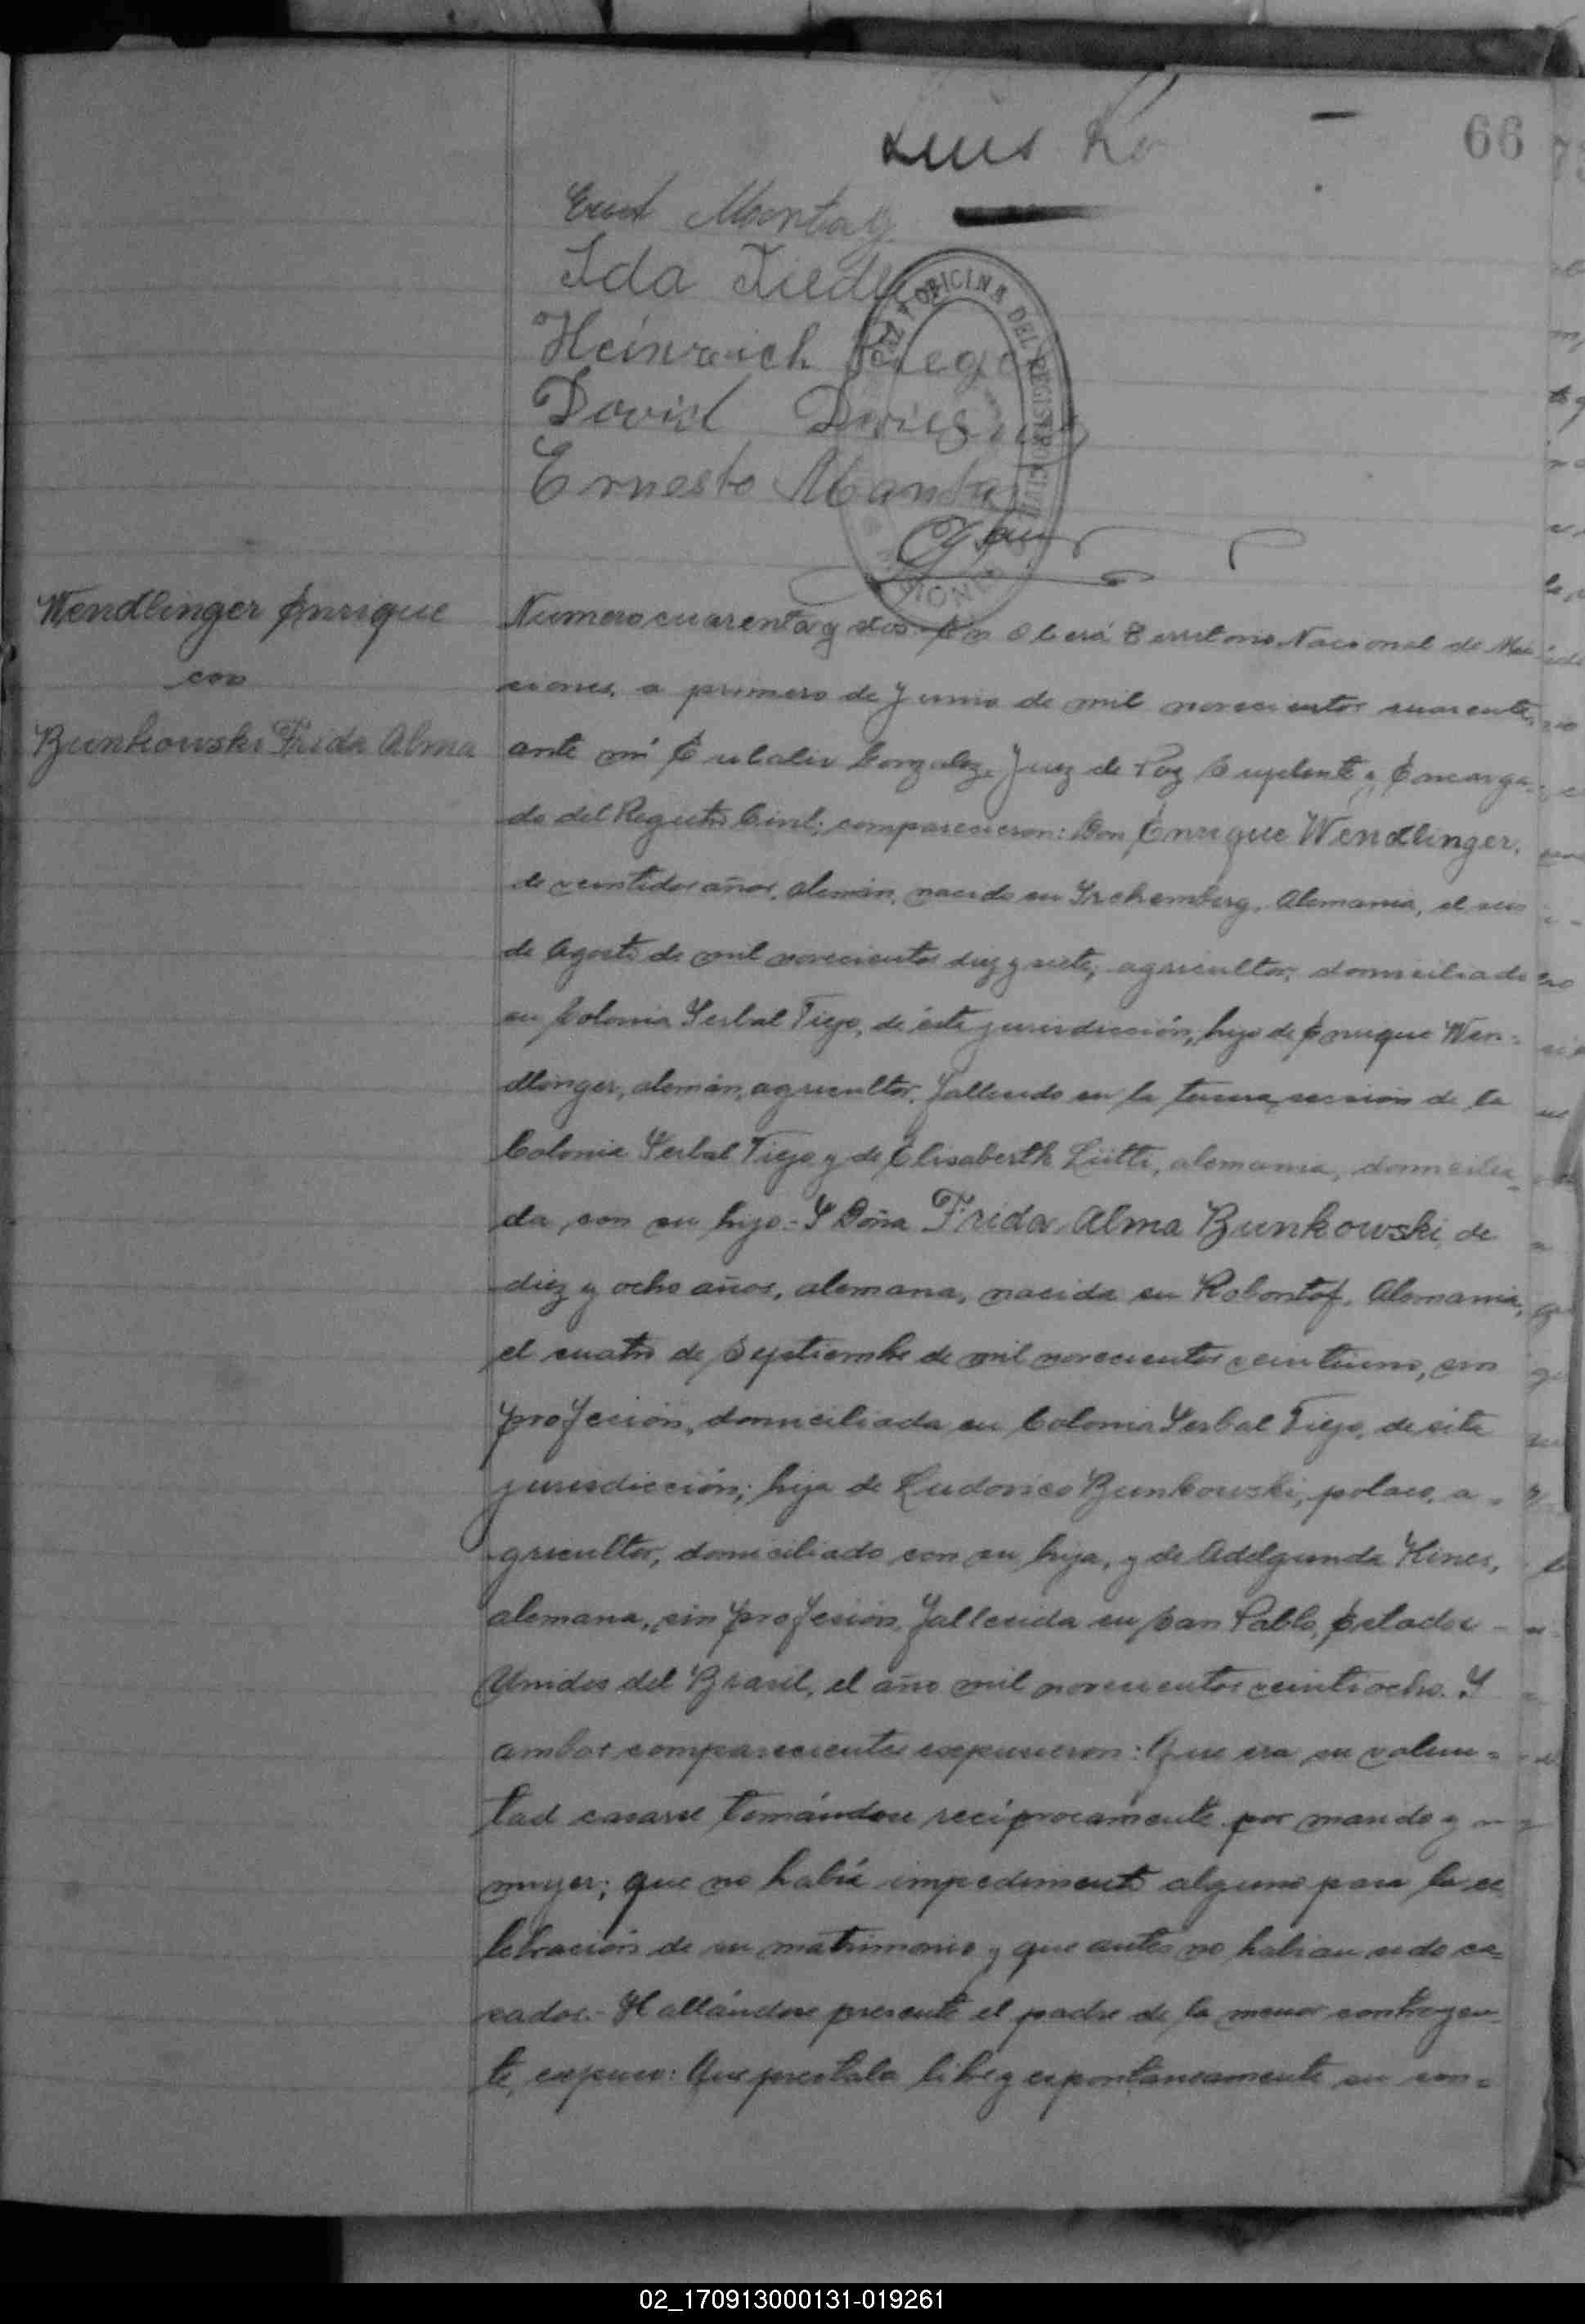 66
Luis
Ernst Montag
Ida Tiede
Heinreich Riege
David
Ernesto Montag
OFICINA DEL REGISTRO CIVIL
MISIONES
Wendlinger Enrique
con
Bunkowski Frida Alma
Numero cuarenta y dos. En Oberá Territorio Nacional de Mi-
siones, a primero de Junio de mil novecientos cuarenta,
ante mi Eulalio Gonzalez, Juez de Paz Suplente y Encarga-
do del Registro Civil; comparecieron: Don Enrique Wendlinger,
de veintidos años, alemán, nacido en Irchemberg, Alemania, el seis
de Agosto de mil novecientos diez y siete, agricultor, domiciliado
en Colonia Yerbal Viejo, de ésta jurisdicción, hijo de Enrique Wen-
dlinger, alemán, agricultor, fallecido en la tercera sección de la
Colonia Yerbal Viejo y de Elisaberth Lütti, alemana, domicilia-
da con su hijo.- Y Doña Frida Alma Bunkowski, de
diez y ocho años, alemana, nacida en Robontof, Alemania,
el cuatro de Septiembre de mil novecientos veintiuno, sin
profeción, domiciliada en Colonia Yerbal Viejo, de ésta
jurisdicción; hija de Ludovico Bunkowski, polaco, a-
gricultor, domiciliado con su hija, y de Adelgunda Hines,
alemana, sin profesión, fallecida en San Pablo, Estados
Unidos del Brasil, el año mil novecientos veintiocho. Y
ambos comparecientes expusieron: Que era su volun-
tad casarse tomándose recíprocamente por marido y
mujer; que no había impedimento alguno para la ce-
lebración de su matrimonio y que antes no habian sido ca-
sados.- Hallándose presente el padre de la menor contrayen-
te, expuso: Que prestaba libre y espontaneamente su con-
02_170913000131-019261